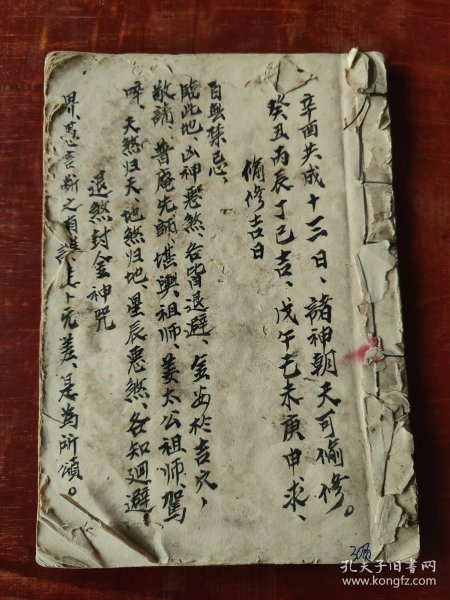 界愚言斯之有元差、是為所頌。
退煞封金神咒
天煞归天、地煞归地、星辰惡煞、各知迴避、
敬請普庵先師、堪輿祖師、姜太公祖師、駕
臨此地、凶神惡煞、各皆退避、金安於吉穴、
百無禁忌、
偷修吉日
癸丑丙辰丁巳吉、戊午己未庚申求、
辛酉共成十二日、諸神朝天可偷修。
孔夫子旧书网
www.kongfz.com